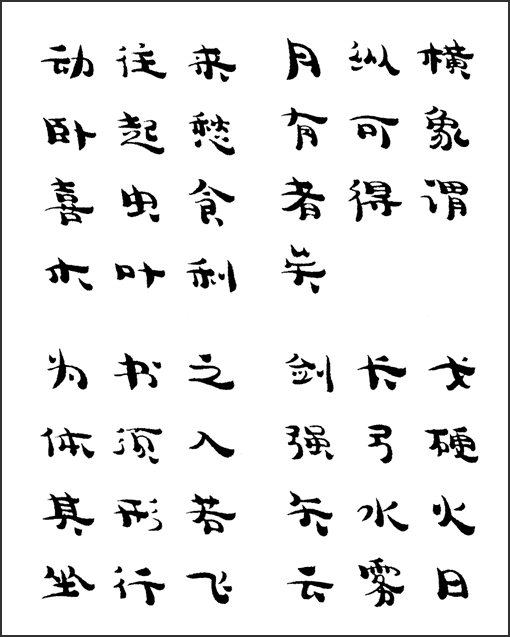 动往来 月纵横
卧起愁 有可象
喜虫食 者得谓
木叶利 矣
为书之 剑长戈
体须入 强弓硬
其形若 矢水火
坐行飞 云雾日